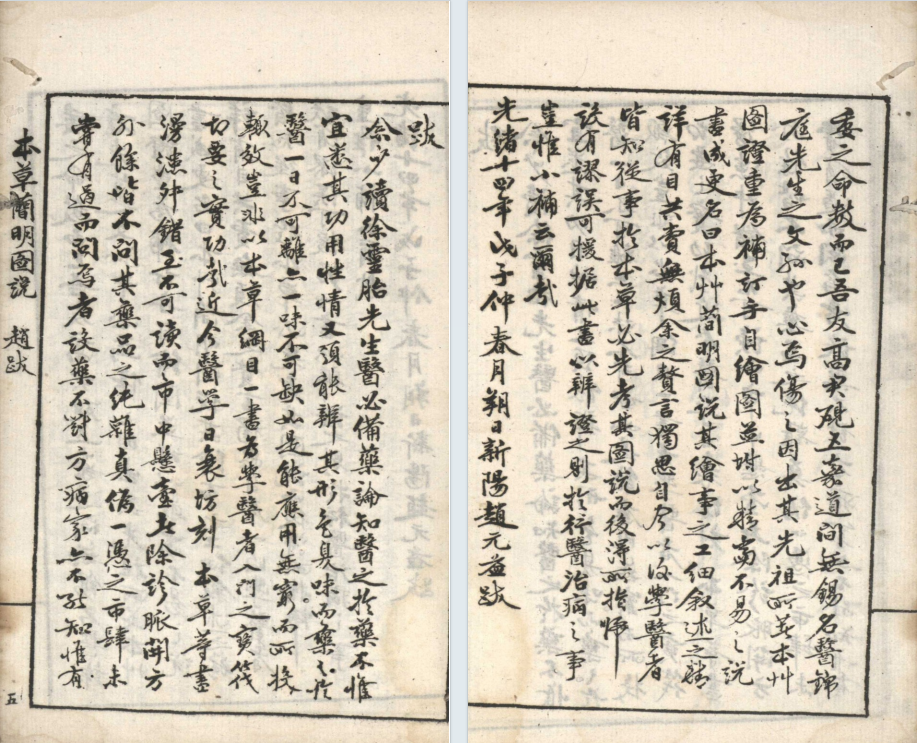 跋
余少讀徐靈胎先生醫必備藥論知醫之於藥不惟
宜悉其功用性情又須能辨其形色臭味而藥之於
醫一日不可離亦一味不可缺如是能應用無窮而所投
輒效豈非以本草綱目一書為學醫者入門之寶筏
切要之實功哉近今醫學日衰坊刻 本草等書
漫漶舛錯至不可讀而市中懸壺者除診脈開方
外餘皆不問其藥品之純雜真偽一憑之市肆未
嘗有過而問焉者設藥不對方病家亦不能知惟有
本草簡明圖説 趙跋
五
委之命數而已吾友高君硯五嘉道間無錫名醫錦
庭先生之文孫也心焉傷之因出其先祖所著本艸
圖證重為補訂手自繪圖並坿以精當不易之說
書成更名曰本艸簡明圖説其繪事之工細敘述之精
詳有目共賞無煩余之贅言獨思自今以後學醫者
皆知從事於本草必先考其圖説而後得所指歸
設有謬誤可援据此書以辨證之則於行醫治病之事
豈惟小補云爾哉
光緒十四年戊子仲春月朔日新陽趙元益跋